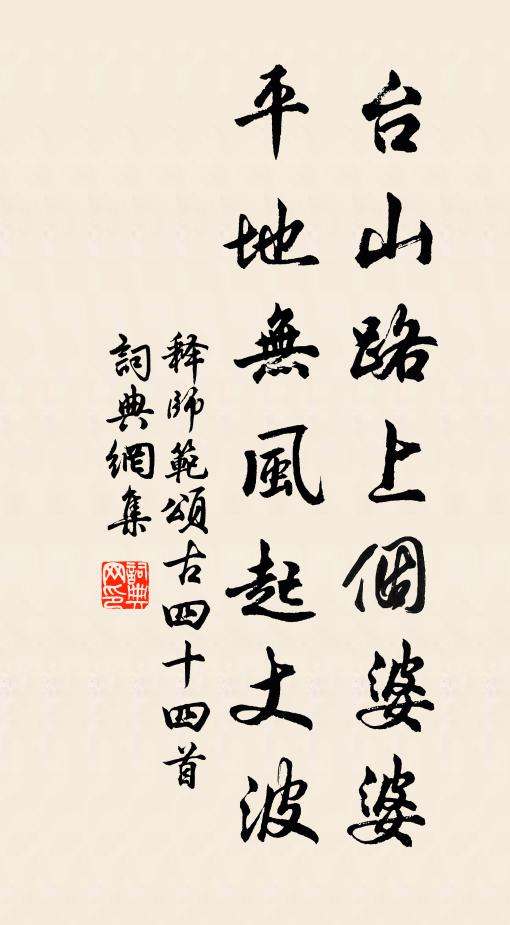 台山路上個婆婆
平地無風起丈波
释師範頌古四十四首
詞典網集
詞典网印